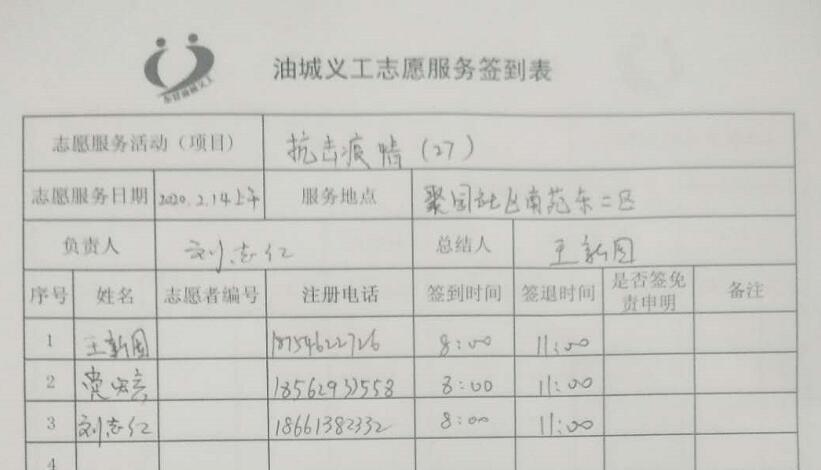 油城义工志愿服务签到表
志愿服务活动（项目） 抗击疫情（27）
志愿服务日期 2020.2.14上午 服务地点 聚园社区南苑东二区
负责人 刘志仁 总结人 王新国
序号 姓名 志愿者编号 注册电话 签到时间 签退时间 是否签免责申明 备注
1 王新国 18754622726 8:00 11:00
2 18562931558 8:00 11:00
3 刘志仁 18661382332 8:00 11:00
4